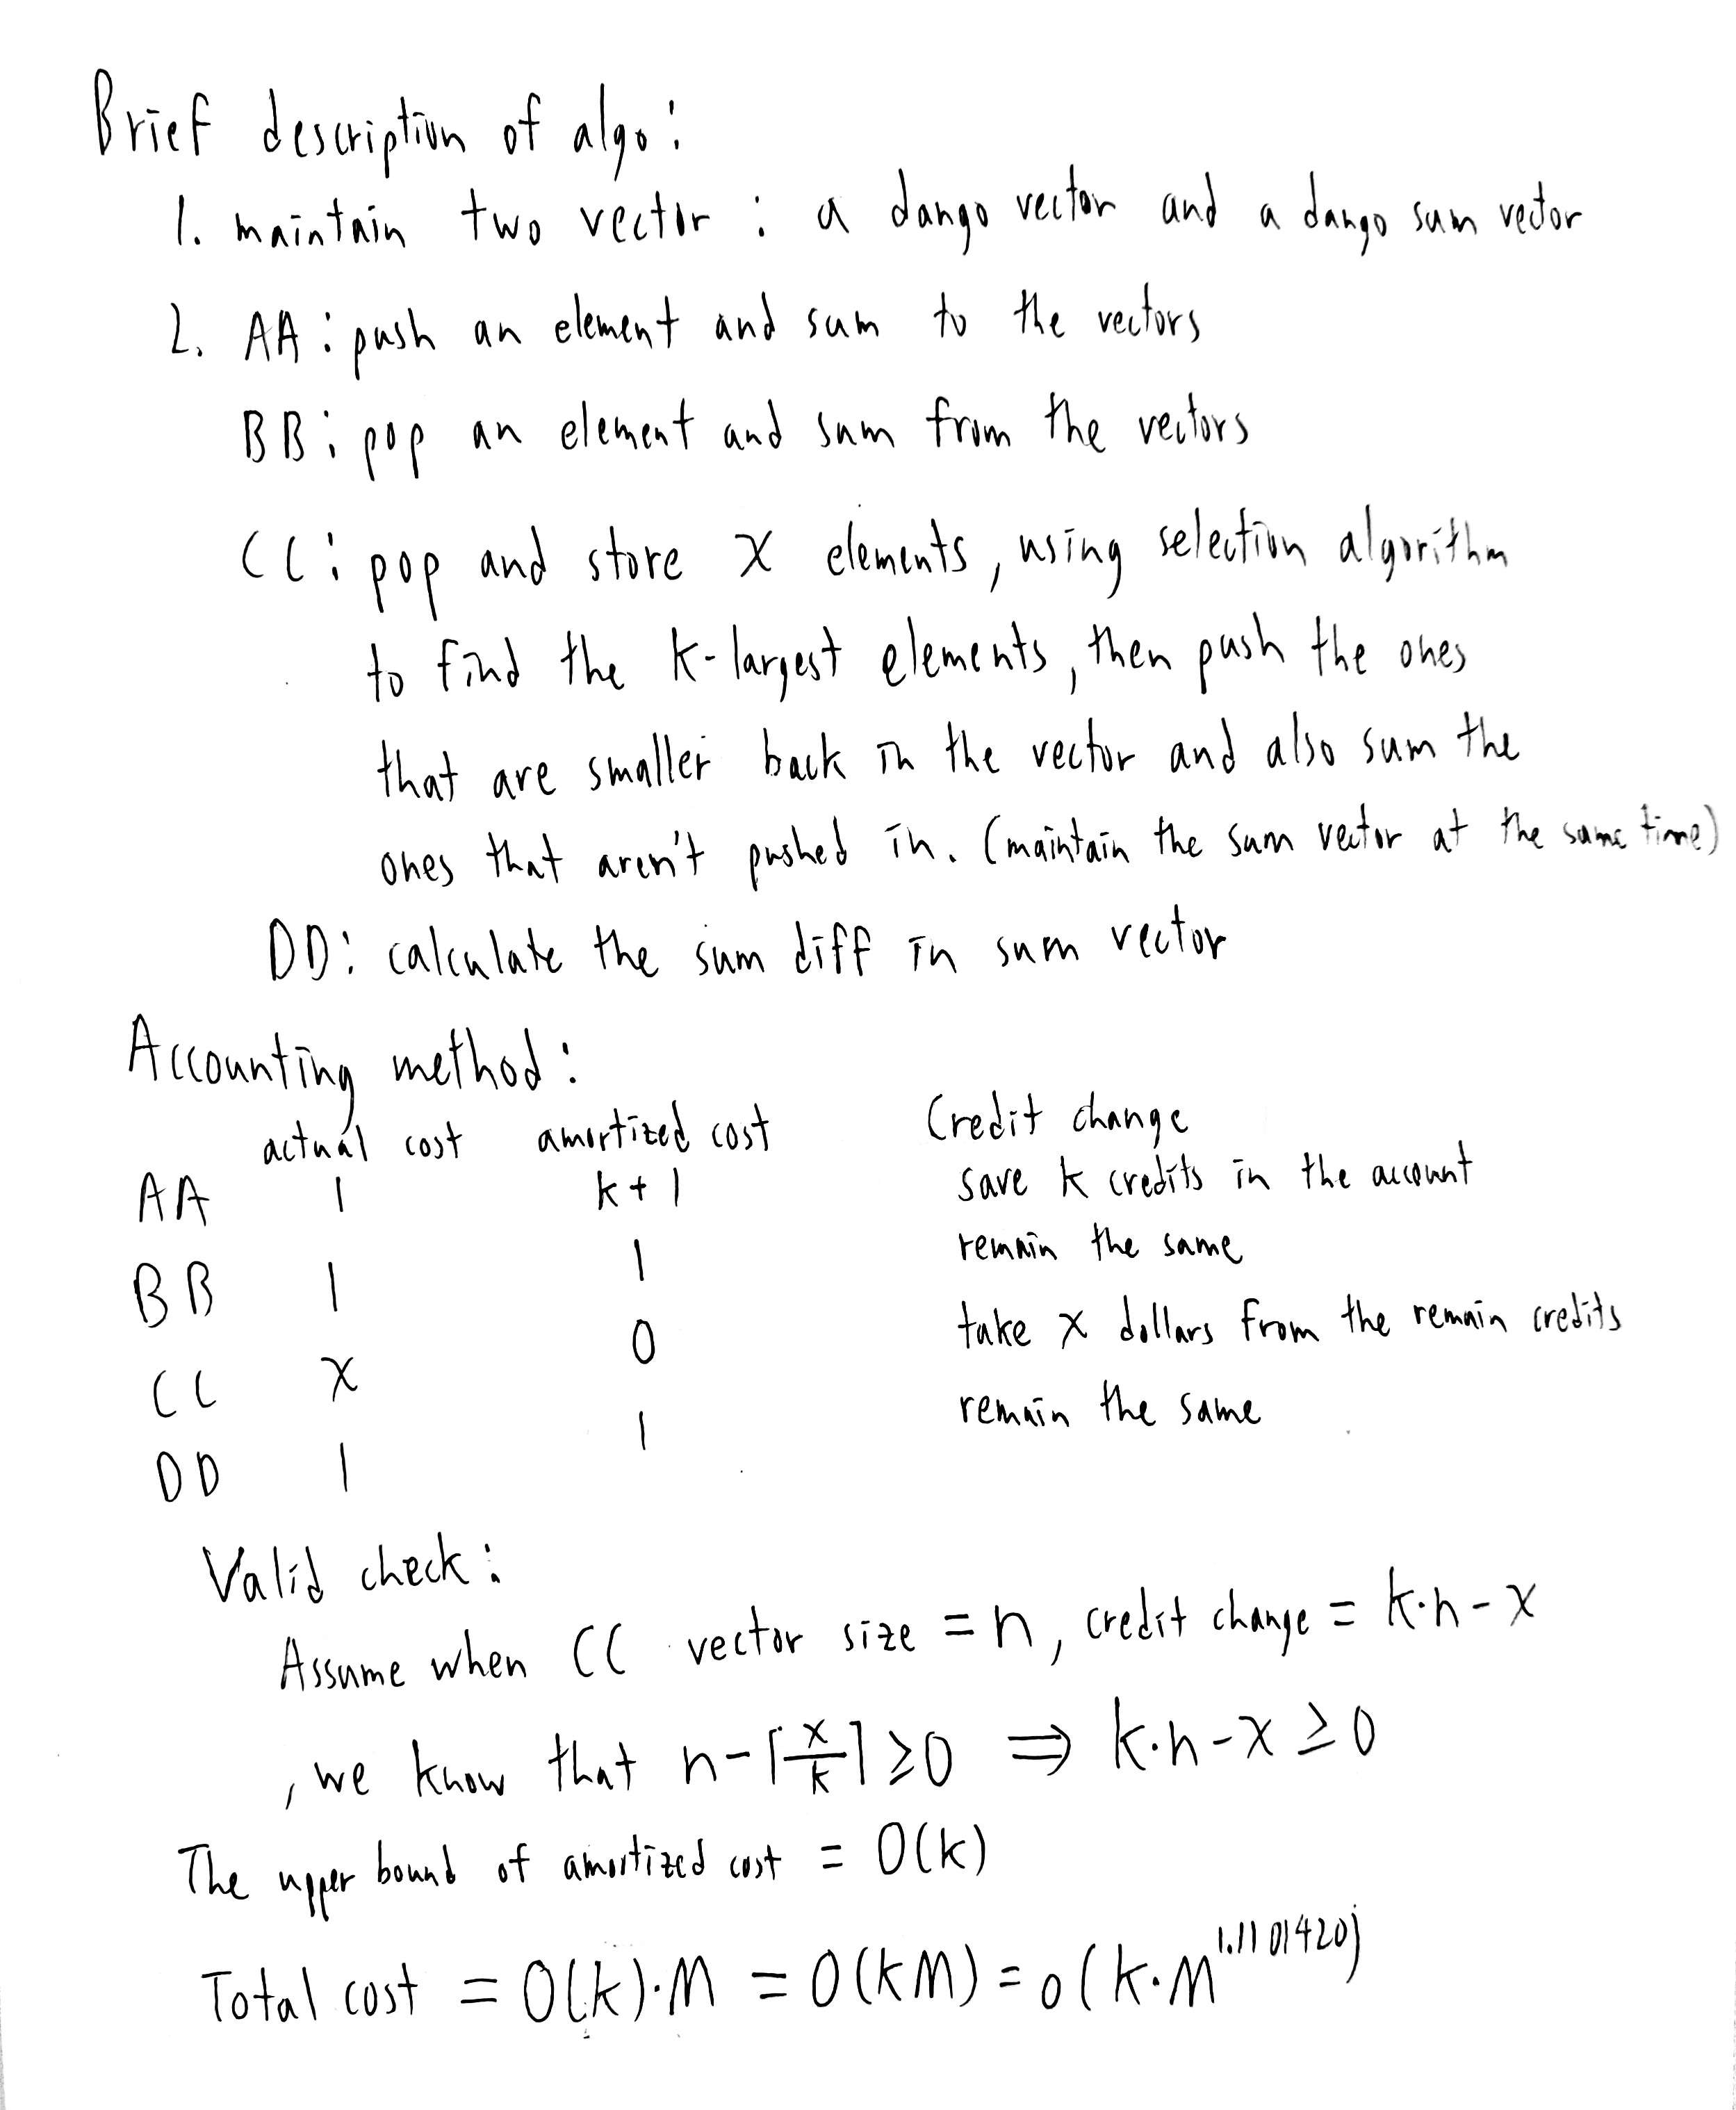 Brief description of algo:
1. maintain two vector : a dango vector and a dango sum vector
2. AA : push an element and sum to the vectors
BB : pop an element and sum from the vectors
CC : pop and store x elements, using selection algorithm
to find the k-largest elements, then push the ones
that are smaller back in the vector and also sum the
ones that aren't pushed in. (maintain the sum vector at the same time)
DD: calculate the sum diff in sum vector
Accounting method:
actual cost amortized cost Credit change
AA 1 k+1 save k credits in the account
BB 1 1 remain the same
CC x 0 take x dollars from the remain credits
DD 1 1 remain the same
Valid check:
Assume when CC vector size = n, credit change = k·n-x
, we know that n-⌈x/k⌉≥0 ⇒ k·n-x≥0
The upper bound of amortized cost = O(k)
Total cost = O(k)·M = O(kM) = o(k·M^1.1101420)